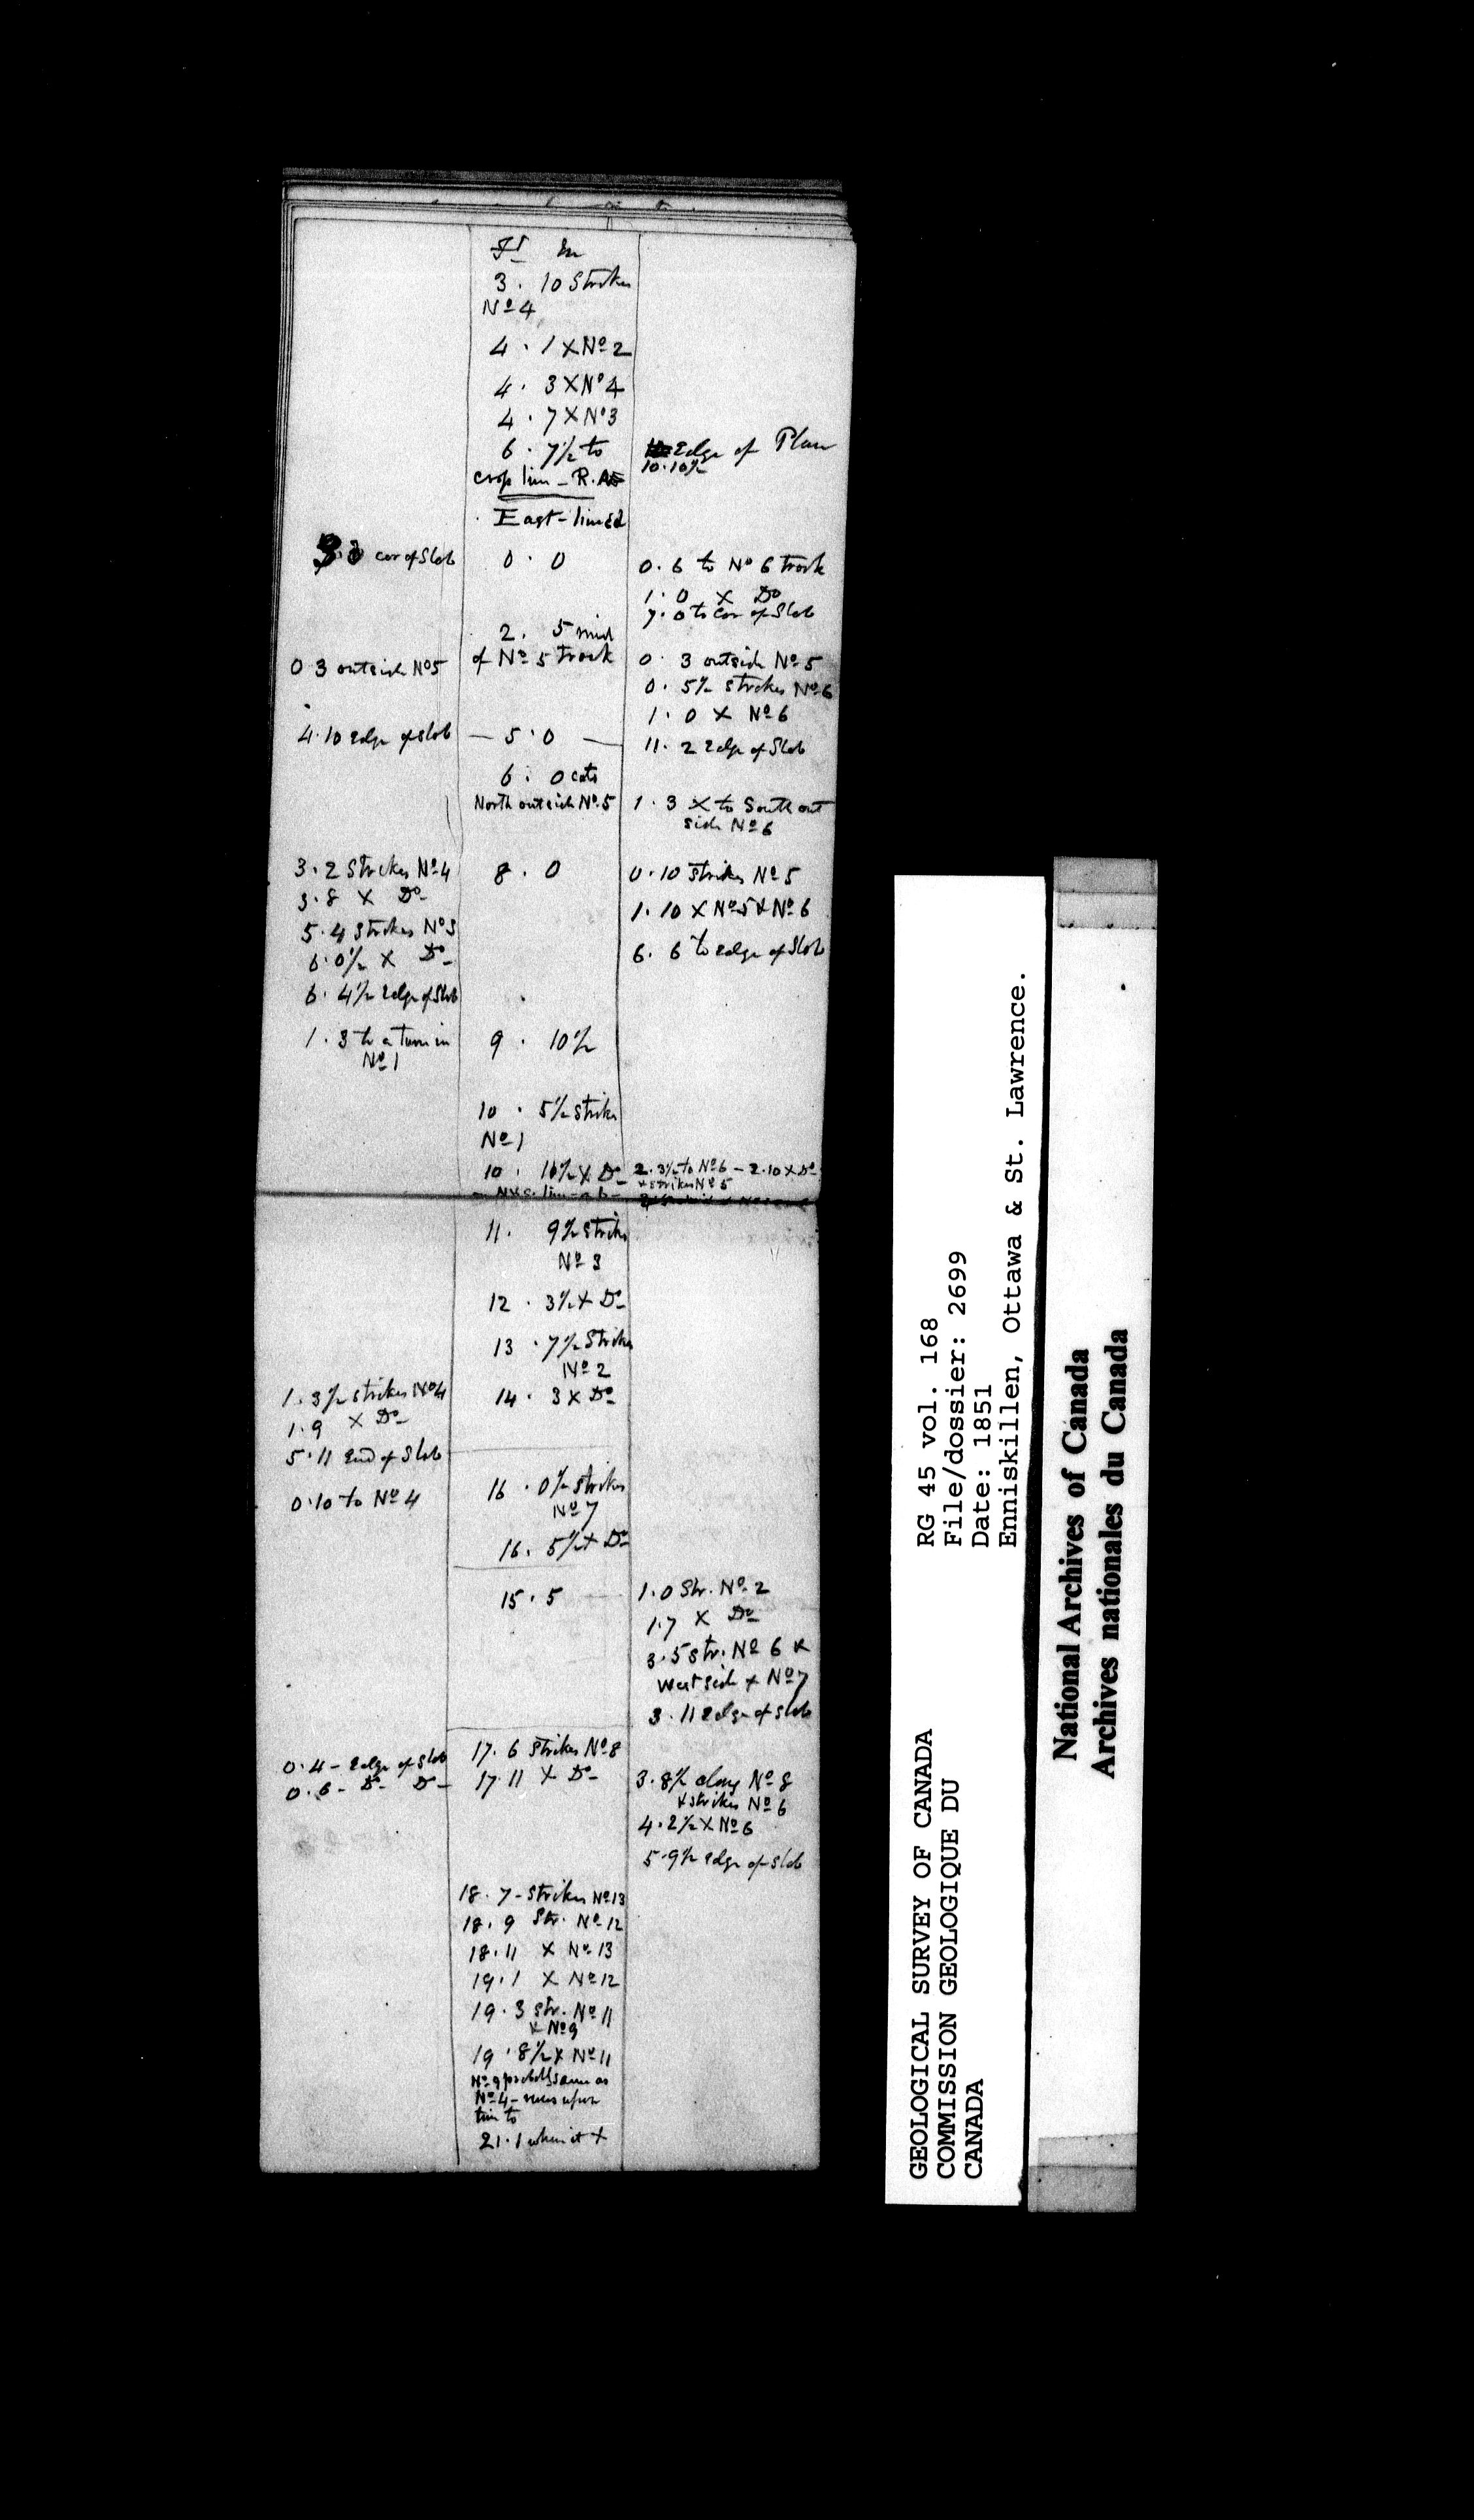 Ft In
3 . 10 Strikes
No 4
4 . 1 X No 2
4 . 3 X No 4
4 . 7 X No 3
6 . 7½ to
Edge of Plan
10.10½
crop line - R.
East-line
3.8 cor of Slab
0 . 0
0 . 6 to No 6 track
1 . 0 X Do
7 . 0 to cor of Slab
2 . 5 mid
of No 5 track
0 3 outside No 5
0 . 3 outside No 5
0 . 5½ strikes No 6
1 . 0 X No 6
4.10 edge of slab
— 5 . 0 —
11 . 2 edge of Slab
6 . 0 cuts
North outside No. 5
1 . 3 X to South out
side No 6
3 . 2 Strikes No 4
8 . 0
0 . 10 strikes No 5
3 . 8 X Do
1 . 10 X No 5 & No 6
5 . 4 Strikes No 3
6 . 0½ X Do
6 . 6 to edge of Slab
6 . 4½ edge of Slab
1 . 3 to a turn in
No 1
9 . 10½
10 . 5½ strikes
No 1
10 . 10½ X Do
2 . 3½ to No 6 - 2.10 X Do
& strikes No 5
11 . 9½ strikes
No 3
12 . 3½ X Do
13 . 7½ Strikes
No 2
1 . 3½ strikes No 4
14 . 3 X Do
1 . 9 X Do
5 . 11 End of Slab
0 . 10 to No 4
16 . 0½ strikes
No 7
16 . 5½ X Do
15 . 5
1 . 0 Str. No 2
1 . 7 X Do
3 . 5 str. No 6 &
West side & No 7
3 . 11 edge of slab
0 . 4 - edge of Slab
17 . 6 Strikes No 8
0 . 6 - Do Do
17 . 11 X Do
3 . 8½ along No 8
& strikes No 6
4 . 2½ X No 6
5 . 9½ edge of slab
18 . 7 - Strikes No 13
18 . 9 Str. No 12
18 . 11 X No 13
19 . 1 X No 12
19 . 3 str. No 11
& No 9
19 . 8½ X No 11
No 9 probably same as
No 4 - runs upon
line to
21 . 1 when it X
GEOLOGICAL SURVEY OF CANADA
COMMISSION GEOLOGIQUE DU
CANADA
RG 45 vol. 168
File/dossier: 2699
Date: 1851
Enniskillen, Ottawa & St. Lawrence.
National Archives of Canada
Archives nationales du Canada